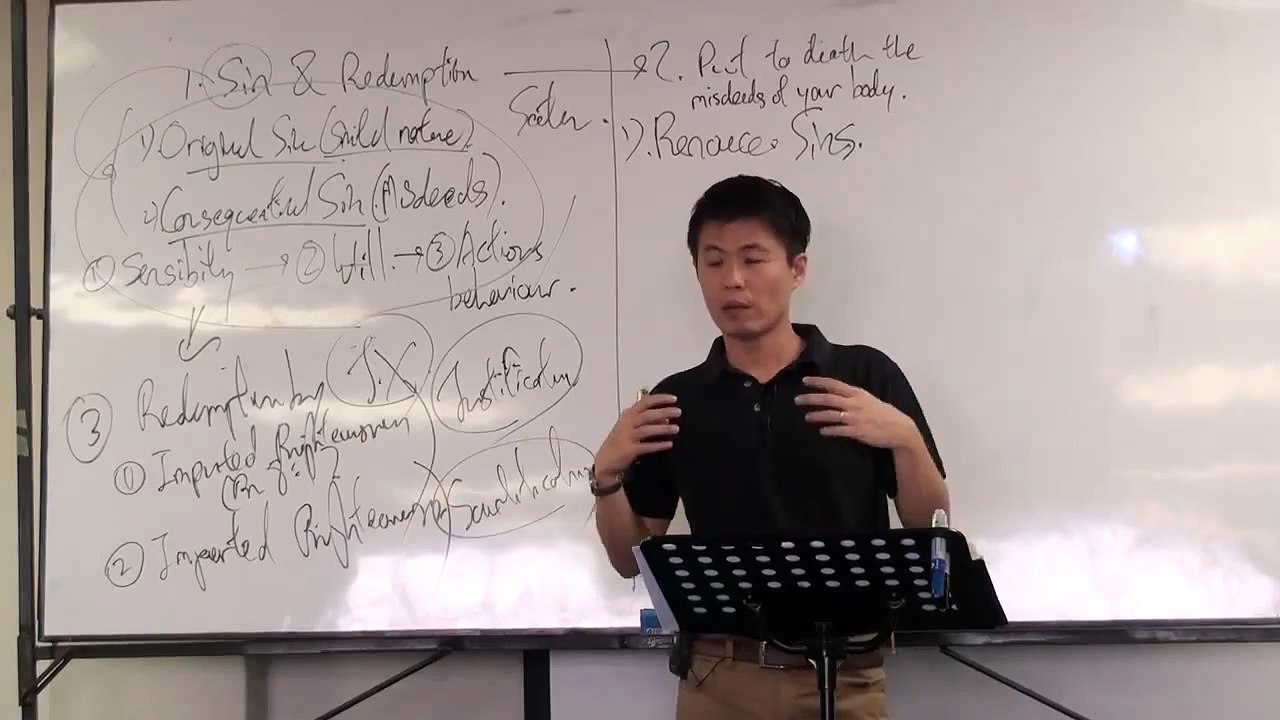 1. Sin & Redemption
1) Original Sin (Sinful nature)
2) Consequential Sin (Misdeeds).
① Sensibity → ② Will → ③ Actions
behaviour.
③ Redemption by J.X Justification
① Imputed Righteousness
② Imparted Righteousness
2. Put to death the
misdeeds of your body.
1). Renounce Sins.